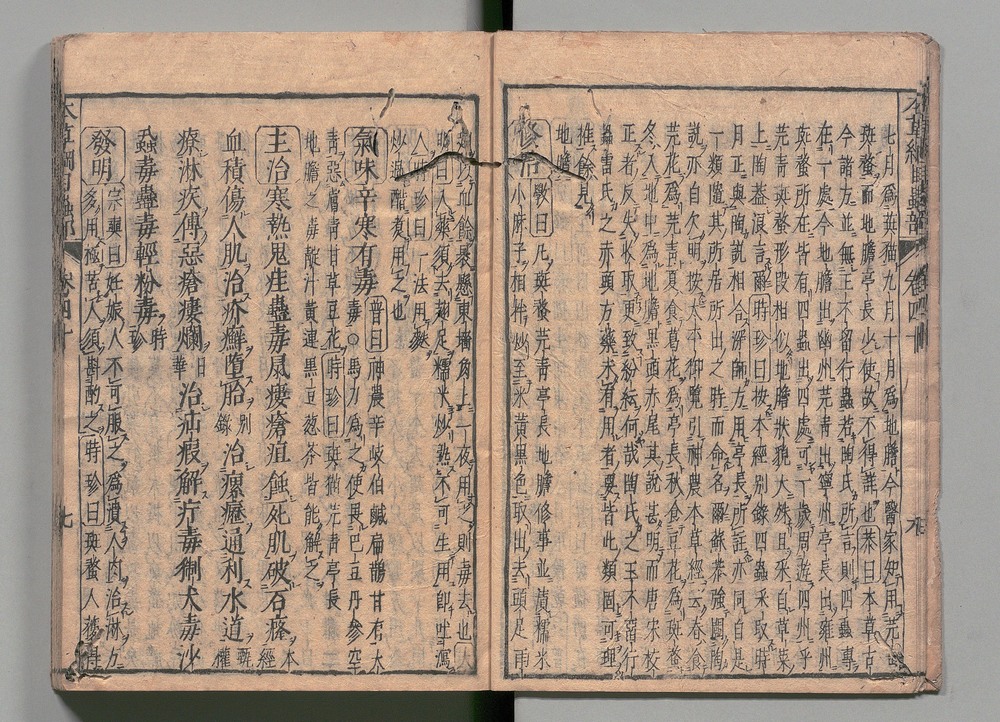 七月爲斑猫九月十月爲地膽今醫家知用芫
斑蝥而地膽亭長少使故不得詳也恭曰本草古
今諸方並無王不留行蟲若陶氏所言則四蟲專
在一處今地膽出幽州芫青出寧州亭長出雍州
斑蝥所在皆有四蟲出四處可一歲周遊四州乎
芫青斑蝥形段相似地膽狀貌大殊且采自草
上陶蓋浪言爾時珍曰按本經別錄四蟲采取時
月正與陶說相合深師方用亭長所註亦同自是
一類隨其所居所出之時而命名爾蘇恭強闢陶
說亦自欠明按太平御覽引神農本草經云春食
芫花爲芫青夏食葛花爲亭長秋食豆花爲斑蝥
冬入地中爲地膽黑頭赤尾其說甚明而唐宋校
正者反失收取更致紛紜何哉陶氏之王不留行
蟲雷氏之赤頭方藥未有用者要皆此類固可理
推餘見
地膽
修治斅曰凡斑蝥芫青亭長地膽修事並漬糯米
小麻子相拌炒至米黃黑色取出去頭足兩
以血餘裹懸東墻角上一夜用之則毒去也大
明曰入藥須去翅足糯米炒熟不可生用即吐瀉
人時珍曰一法用麩
炒過醋煮用之也
氣味辛寒有毒普曰神農辛岐伯鹹扁鵲甘有大
毒○馬刀爲之使畏巴豆丹參空
青惡膚青甘草豆花時珍曰斑猫芫青亭長
地膽之毒靛汁黃連黑豆葱茶皆能解之
主治寒熱鬼疰蠱毒鼠瘻瘡疽蝕死肌破石癃本經
血積傷人肌治疥癬墮胎別錄治瘰癧通利水道甄權
療淋疾傅惡瘡瘻爛日華治疝瘕解疔毒猘犬毒沙
虱毒蠱毒輕粉毒時珍
發明宗奭曰妊娠人不可服之爲潰人肉治淋方
多用極苦人須斟酌之時珍曰斑蝥人獲得
本草綱目蟲部
卷四十
九